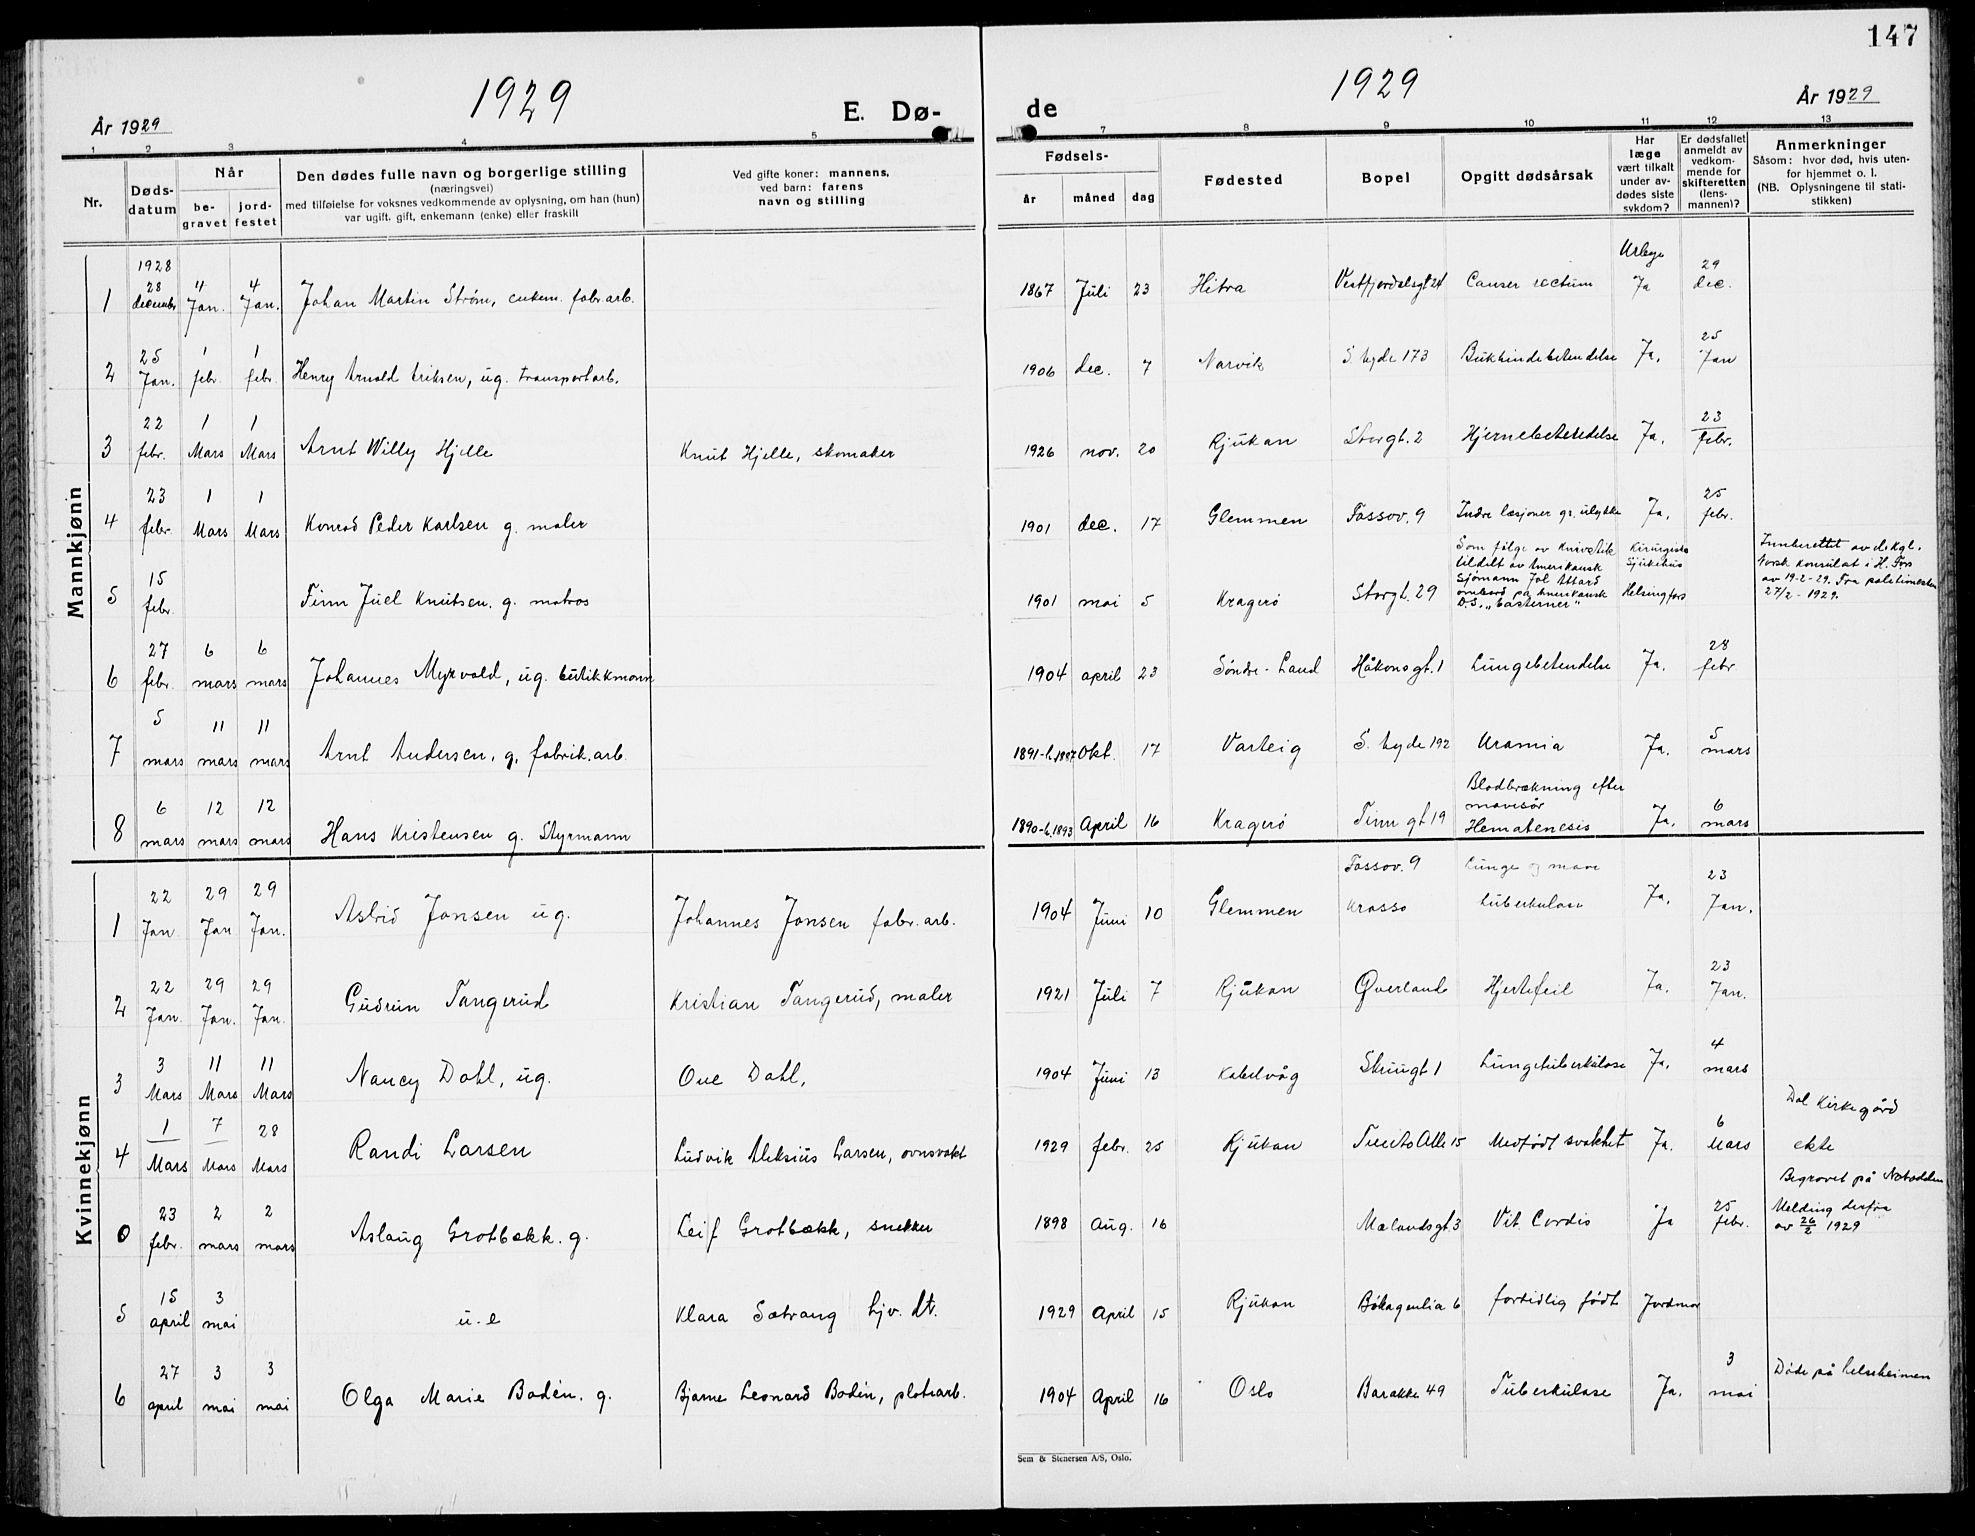 147
1929
1929
År 1929
E. Dø-
de
År 1929
1 2 3 4 5 7 8 9 10 11 12 13
Nr.
Døds-
datum
Når
be-
gravet
jord-
festet
Den dødes fulle navn og borgerlige stilling
(næringsvei)
med tilføielse for voksnes vedkommende av oplysning, om han (hun)
var ugift, gift, enkemann (enke) eller fraskilt
Ved gifte koner: mannens,
ved barn: farens
navn og stilling
Fødsels-
år måned dag
Fødested
Bopel
Opgitt dødsårsak
Har
læge
vært tilkalt
under av-
dødes siste
sykdom?
Er dødsfallet
anmeldt av
vedkom-
mende for
skifteretten
(lens-
mannen)?
Anmerkninger
Såsom: hvor død, hvis uten-
for hjemmet o. l.
(NB. Oplysningene til stati-
stikken)
Mannkjønn
1 1928 28 december 4 Jan. 4 Jan. Johan Martin Strøm, enkem. fabr. arb. 1867 Juli 23 Hitra Vestfjordalsgt 24 Canser rectum Ja 29 dec.
2 25 Jan. 1 febr. 1 febr. Henry Arnold Eriksen, ug. transportarb. 1906 dec. 7 Narvik S. byde 173 Bukhindebetendelse Ja, 25 Jan
3 22 febr. 1 Mars 1 Mars Arnt Willy Hjelle Knut Hjelle, skomaker 1926 nov. 20 Rjukan Storgt. 2 Hjernebetendelse Ja, 23 febr.
4 23 febr. 1 Mars 1 Mars Konrad Peder Karlsen g. maler 1901 dec. 17 Glemmen Fossov. 9 Indre læsjoner gr. ulykke Ja, 25 febr.
5 15 febr. Finn Juel Knutsen. g. matros 1901 mai 5 Kragerø Storgt. 29
Som følge av knivstik
tildelt av Amerikansk
Sjømann
ombord på Amerikansk
D.S. „Easterner"
Kirurgiske
Sjukehus
Helsingfors
Innberettet av d. Kgl.
Norsk konsulat i H. Fors
av 19-2-29. Fra politimesteren
27/2 - 1929.
6 27 febr. 6 mars 6 mars Johannes Myrvold, ug. butikkmann 1904 april 23 Søndre-Land Håkonsgt. 1 Lungebetendelse Ja. 28 febr
7 5 mars 11 mars 11 mars Arnt Andersen, g. fabrik. arb. 1891-b.1887 Okt. 17 Varteig S. byde 192 Uramia Ja. 5 mars
8 6 mars 12 mars 12 mars Hans Kristensen g. Styrmann 1890-b.1893 April 16 Kragerø Tinn gt 19 Blodbrækning efter mavesår Hematenesis Ja. 6 mars
Kvinnekjønn
1 22 Jan. 29 Jan 29 Jan. Astrid Jansen ug. Johannes Jansen fabr. arb. 1904 Juni 10 Glemmen Fossov. 9 Krosso Lunge og mave tuberkulose Ja. 23 Jan.
2 22 Jan. 29 Jan. 29 Jan. Gudrun Tangerud Kristian Tangerud, maler 1921 Juli 7 Rjukan Øverland Hjertefeil Ja. 23 Jan.
3 3 Mars 11 Mars 11 Mars Nancy Dahl, ug. Ove Dahl, 1904 Juni 13 Kabelvåg Skriugt 1 Lungetuberkulose Ja. 4 mars
4 1 Mars 7 Mars 28 Mars Randi Larsen Ludvik Aleksius Larsen, ovnsvakt 1929 febr. 25 Rjukan Tveito Alle 15 Medfødt svakhet Ja. 6 Mars Dal Kirkegård ekte
0 23 febr. 2 mars 2 mars Aslaug Grotbækk. g. Leif Grotbækk, snekker 1898 Aug. 16 Mælandsgt 3 Vit. Cordis Ja 25 febr. Begravet på Notodden
Melding derfra
av 26/2 1929
5 15 april 3 mai u.e Klara Sætrang hjv. dt. 1929 April 15 Rjukan Bøkagenlia 6 fortidlig født Jordmor
6 27 april 3 mai 3 mai Olga Marie Bodén. g. Bjarne Leonard Bodén, platearb. 1904 April 16 Oslo Barakke 49 Tuberkulose Ja. 3 mai Døde på helseheimen
Sem & Stenersen A/S, Oslo.